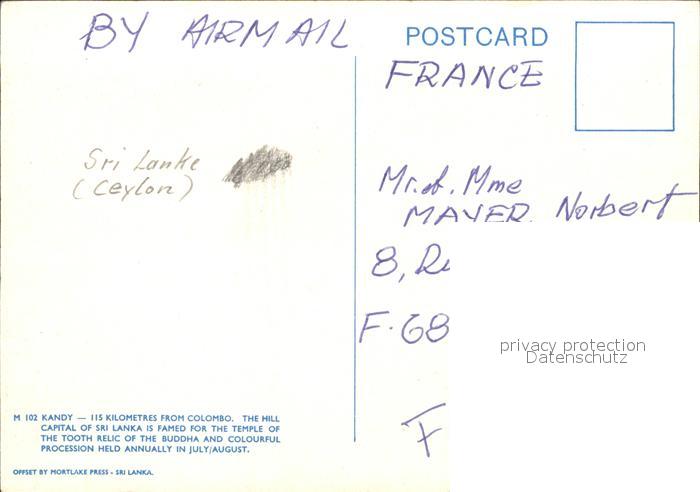 BY AIRMAIL
POSTCARD
FRANCE
Sri Lanke
(Ceylon)
Mr. et. Mme
MAYER Norbert
8, Ru
F-68
F
privacy protection
Datenschutz
M 102 KANDY — 115 KILOMETRES FROM COLOMBO. THE HILL
CAPITAL OF SRI LANKA IS FAMED FOR THE TEMPLE OF
THE TOOTH RELIC OF THE BUDDHA AND COLOURFUL
PROCESSION HELD ANNUALLY IN JULY/AUGUST.
OFFSET BY MORTLAKE PRESS - SRI LANKA.